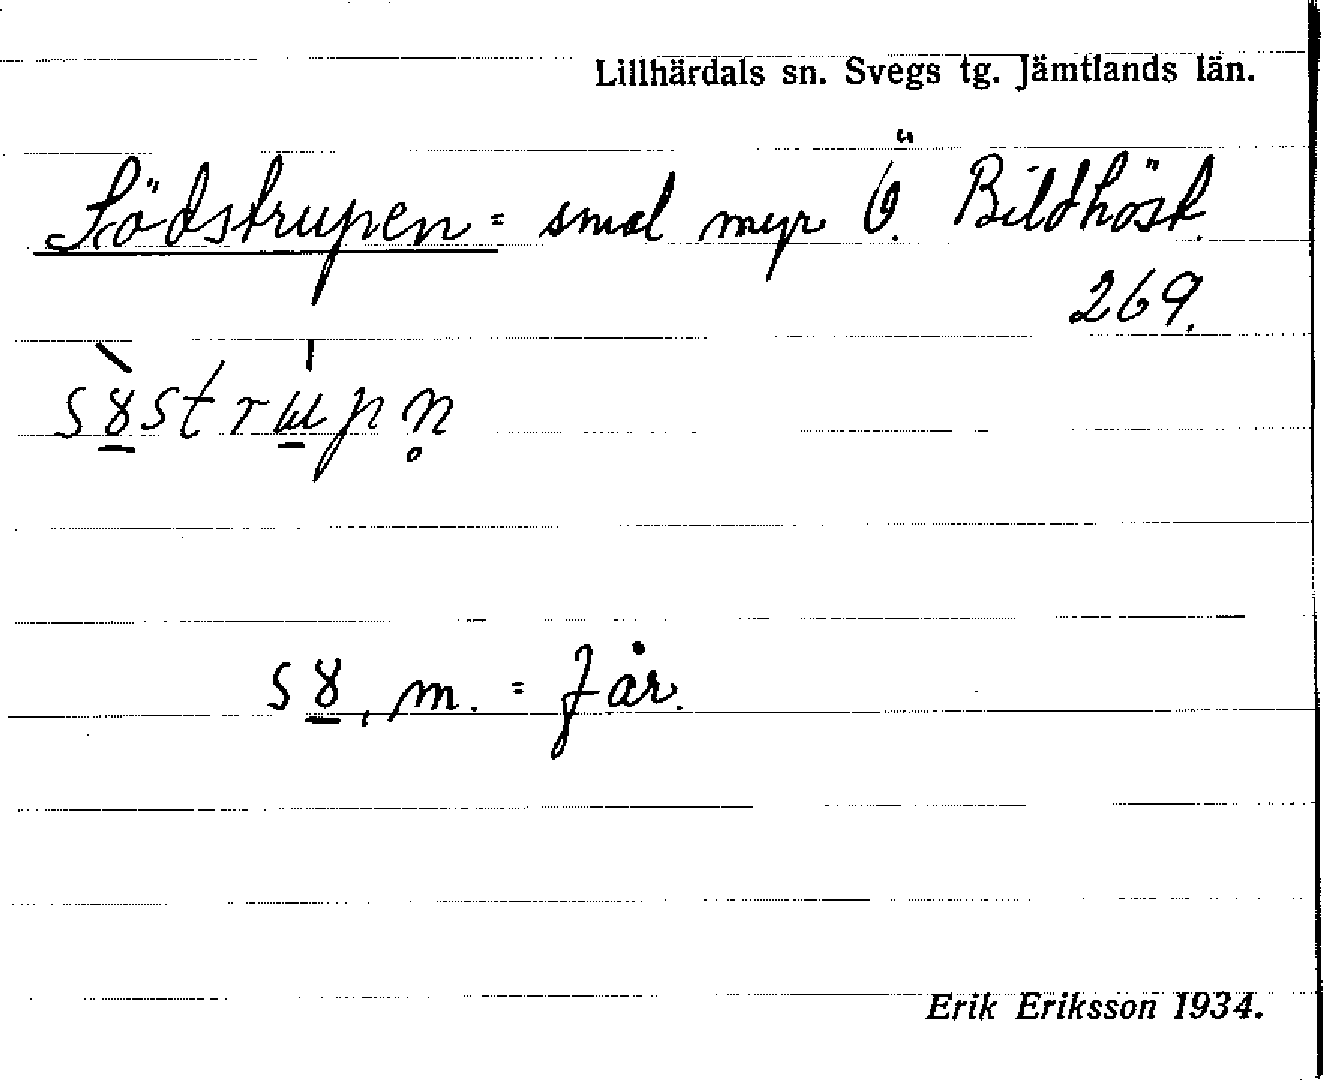 Lillhärdals sn. Svegs tg. Jämtlands län.
Södstrupen = smal myr Ö. Bildhöst.
269.
sɤ̱̀strɯ̱́pn̥
sɤ̱, m. = får.
Erik Eriksson 1934.